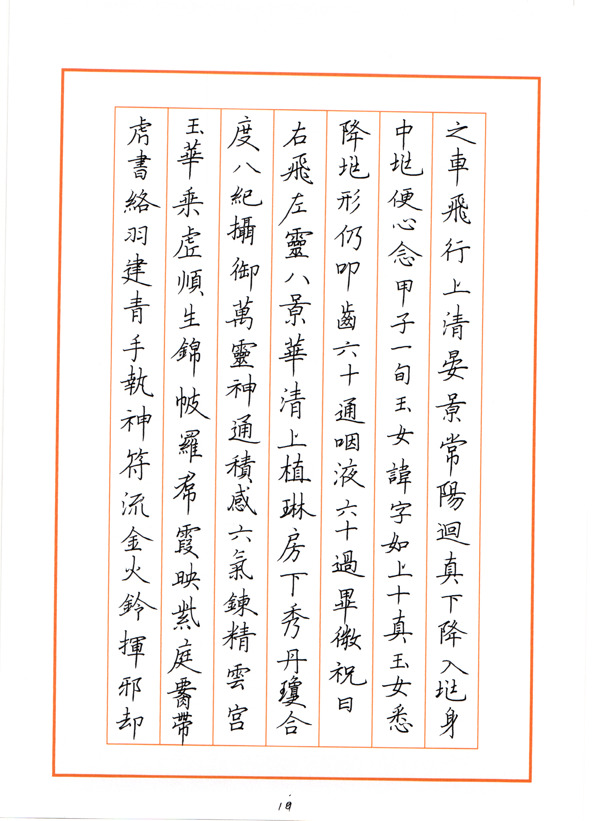 之車飛行上清晏景常陽迴真下降入𡉏身
中𡉏便心念甲子一旬玉女諱字如上十真玉女悉
降𡉏形仍叩齒六十通咽液六十過畢微祝曰
右飛左靈八景華清上植琳房下秀丹瓊合
度八紀攝御萬靈神通積感六氣鍊精雲宮
玉華乘虛順生錦帔羅裙霞映紫庭腰帶
虎書絡羽建青手執神符流金火鈴揮邪却